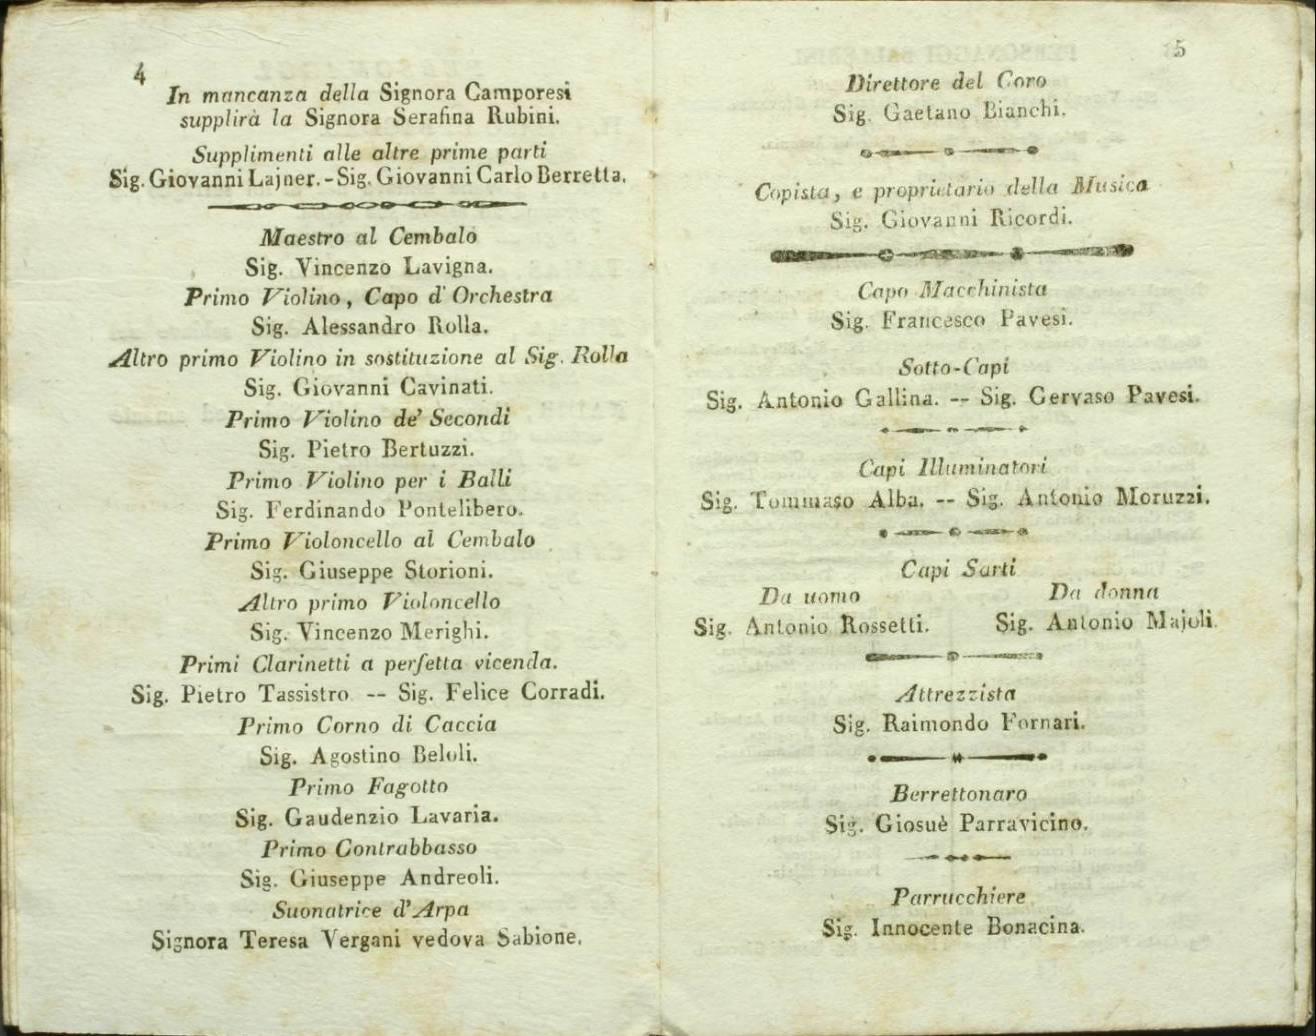 4
In mancanza della Signora Camporesi
supplirà la Signora Serafina Rubini.
Supplimenti alle altre prime parti
Sig. Giovanni Lajner. - Sig. Giovanni Carlo Berretta.
Maestro al Cembalo
Sig. Vincenzo Lavigna.
Primo Violino, Capo d'Orchestra
Sig. Alessandro Rolla.
Altro primo Violino in sostituzione al Sig. Rolla
Sig. Giovanni Cavinati.
Primo Violino de' Secondi
Sig. Pietro Bertuzzi.
Primo Violino per i Balli
Sig. Ferdinando Pontelibero.
Primo Violoncello al Cembalo
Sig. Giuseppe Storioni.
Altro primo Violoncello
Sig. Vincenzo Merighi.
Primi Clarinetti a perfetta vicenda.
Sig. Pietro Tassistro -- Sig. Felice Corradi.
Primo Corno di Caccia
Sig. Agostino Beloli.
Primo Fagotto
Sig. Gaudenzio Lavaria.
Primo Contrabbasso
Sig. Giuseppe Andreoli.
Suonatrice d'Arpa
Signora Teresa Vergani vedova Sabione.
5
Direttore del Coro
Sig. Gaetano Bianchi.
Copista, e proprietario della Musica
Sig. Giovanni Ricordi.
Capo Macchinista
Sig. Francesco Pavesi.
Sotto-Capi
Sig. Antonio Gallina. -- Sig. Gervaso Pavesi.
Capi Illuminatori
Sig. Tommaso Alba. -- Sig. Antonio Moruzzi.
Capi Sarti
Da uomo Da donna
Sig. Antonio Rossetti. Sig. Antonio Majoli.
Attrezzista
Sig. Raimondo Fornari.
Berrettonaro
Sig. Giosuè Parravicino.
Parrucchiere
Sig. Innocente Bonacina.